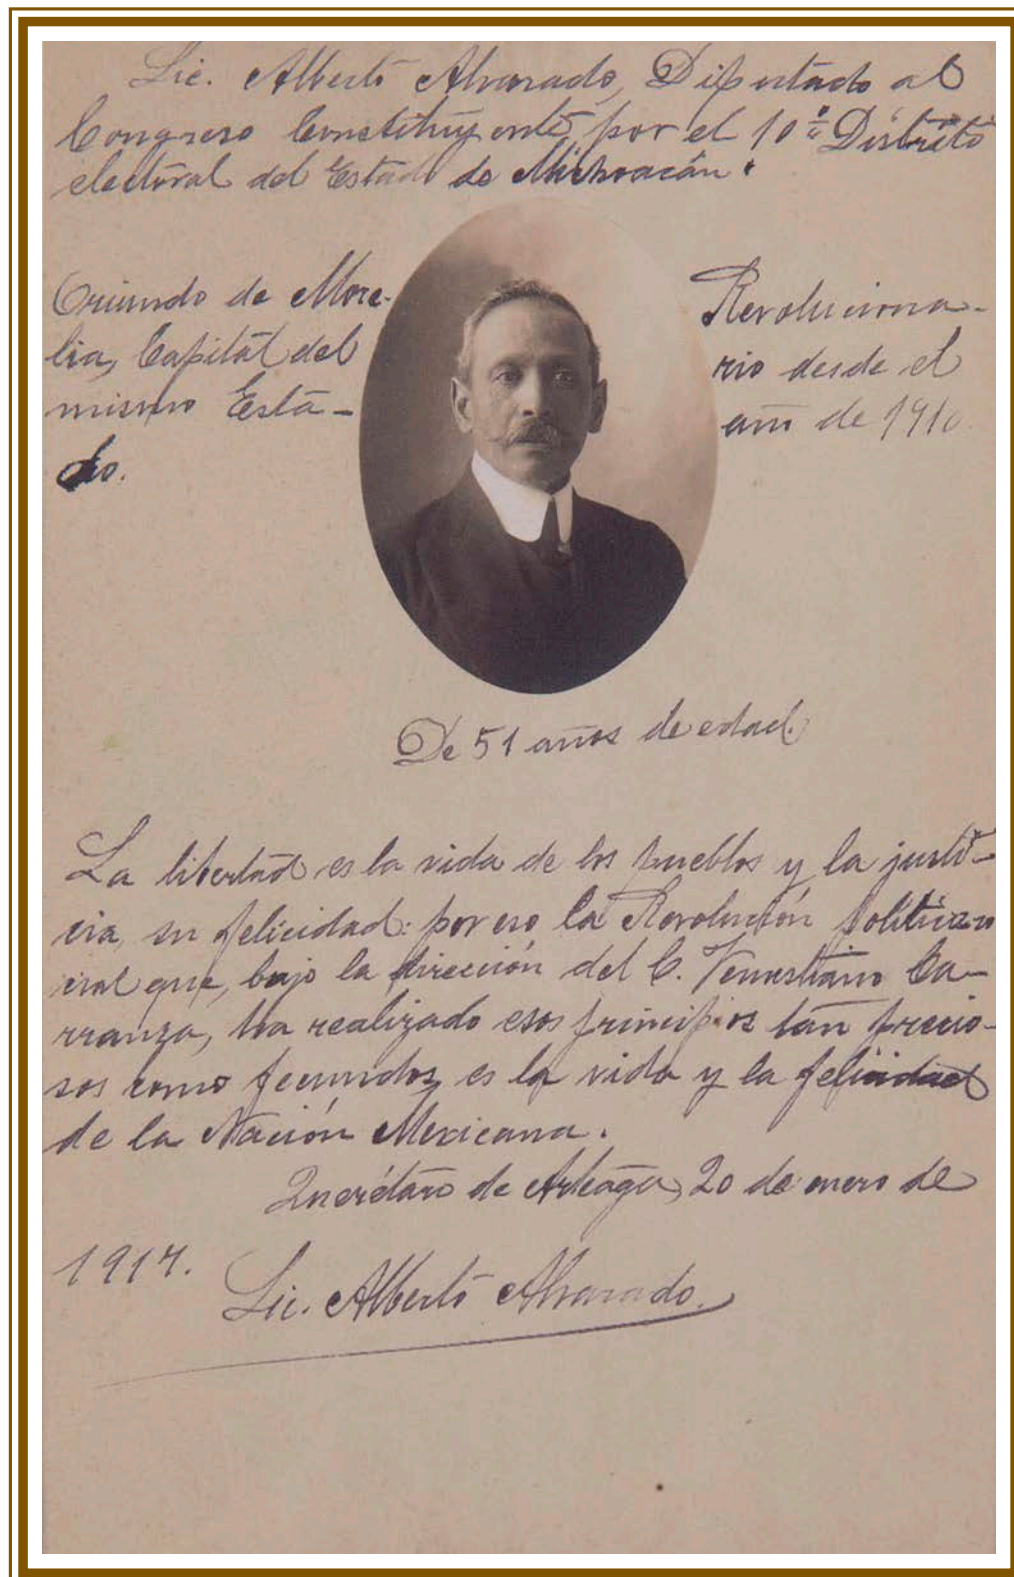 Lic. Alberto Alvarado, Diputado al
Congreso Constituyente, por el 10º Distrito
electoral del Estado de Michoacán.
Oriundo de More-
lia, Capital del
mismo Esta-
do.
Revoluciona-
rio desde el
año de 1910.
De 51 años de edad.
La libertad es la vida de los pueblos y la justi-
cia, su felicidad: por eso la Revolución político so
cial que, bajo la dirección del C. Venustiano Ca-
rranza, ha realizado esos principios tan precio-
sos como fecundos, es la vida y la felicidad
de la Nación Mexicana.
Querétaro de Arteaga, 20 de enero de
1917.
Lic. Alberto Alvarado.